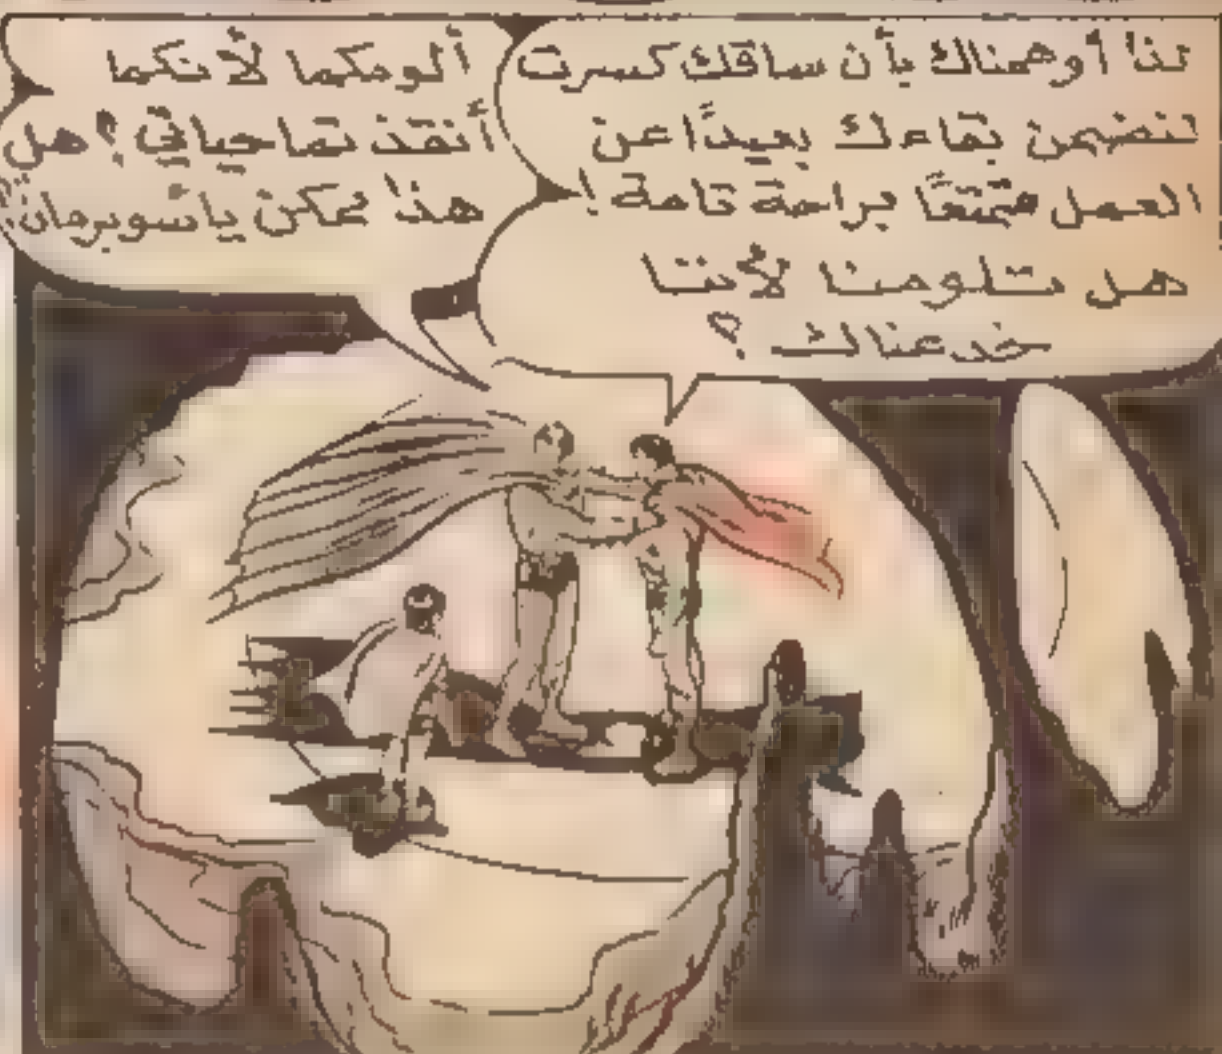 لذا أوهمناك بأن ساقك كسرت
لنضمن بقاءك بعيدًا عن
العمل متمتعًا براحة تامة!
هل تلومنا لأننا
خدعناك؟
ألومكما لأنكما
أنقذتما حياتي؟ هل
هذا ممكن ياسوبرمان؟